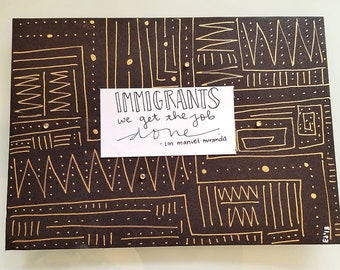 IMMIGRANTS
we get the job
done
- lin manuel miranda